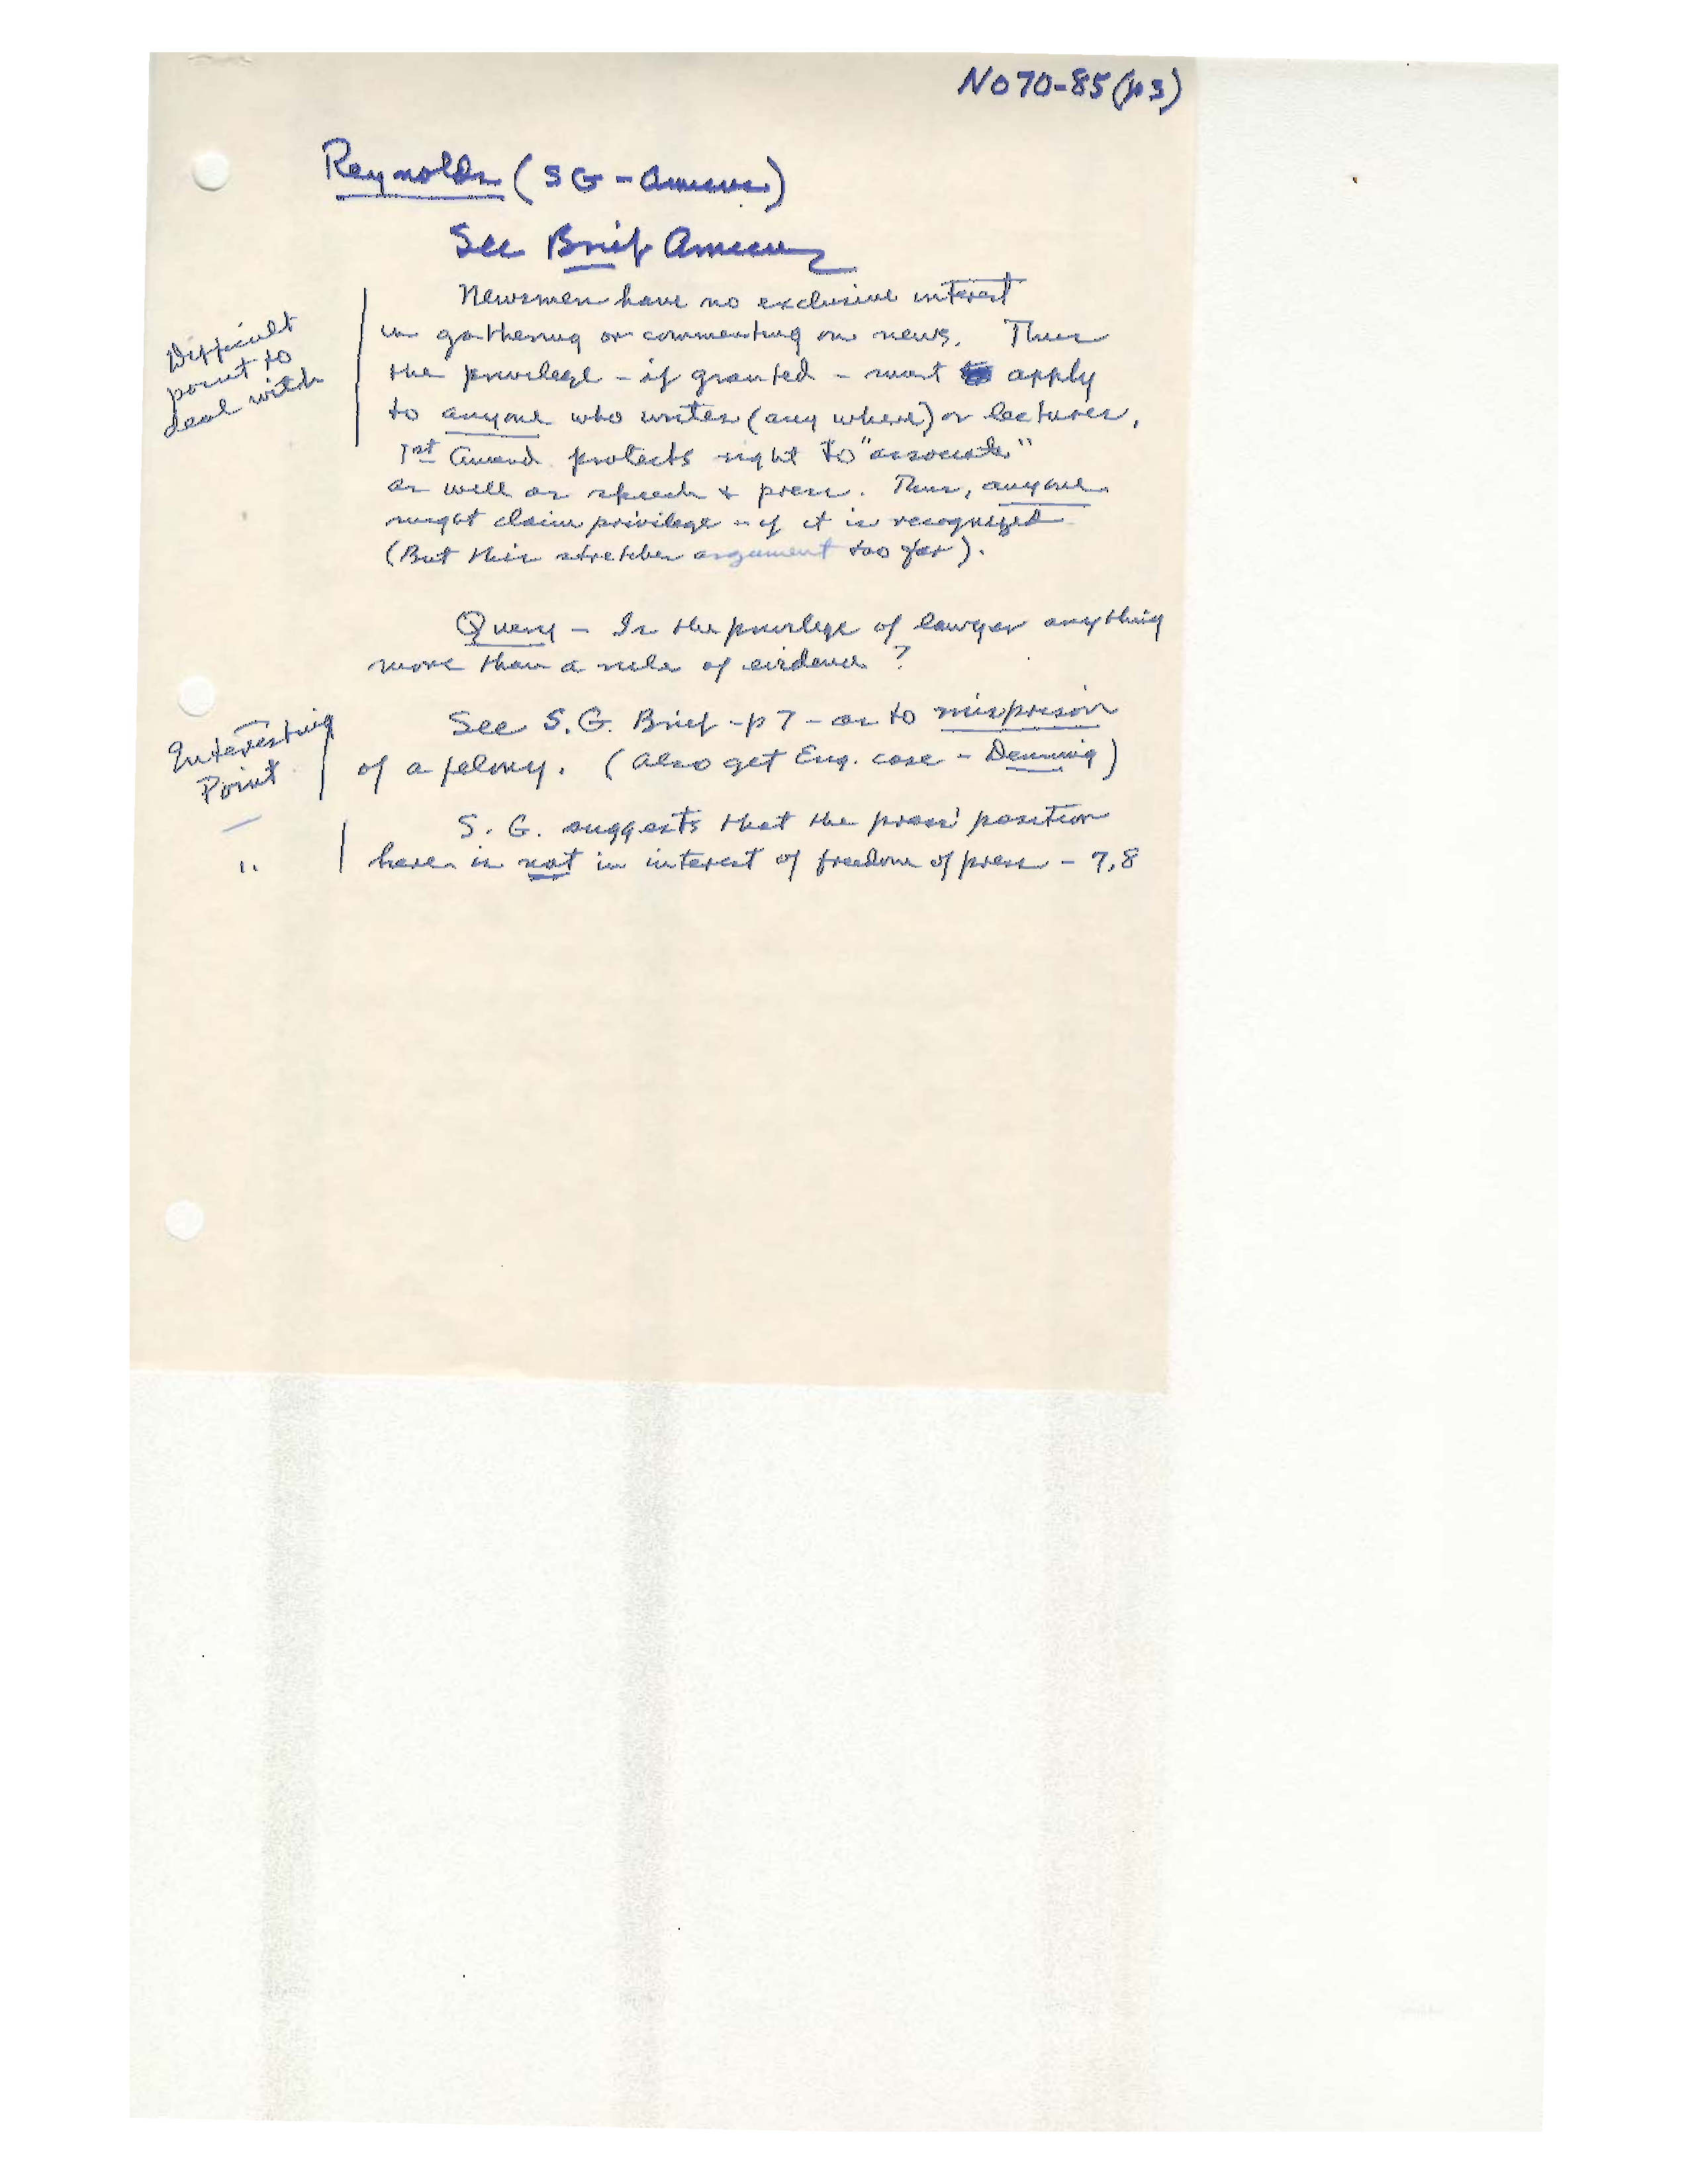 No 70-85 (p 3)
Reynolds (SG - Amicus)
See Brief Amicus
Newsmen have no exclusive interest
in gathering or commenting on news. Thus
the privilege - if granted - must apply
to anyone who writes (any where) or lectures.
Difficult
point to
deal with
1st Amend. protects right to "associate"
as well as speech & press. Thus, anyone
might claim privilege - if it is recognized
(But this stretches argument too far).
Query - Is the privilege of lawyer anything
more than a rule of evidence?
See S.G. Brief - p 7 - as to misprison
of a felony. (Also get Eng. case - Denning)
Interesting
Point
S.G. suggests that the press' position
here is not in interest of freedom of press - 7,8
"